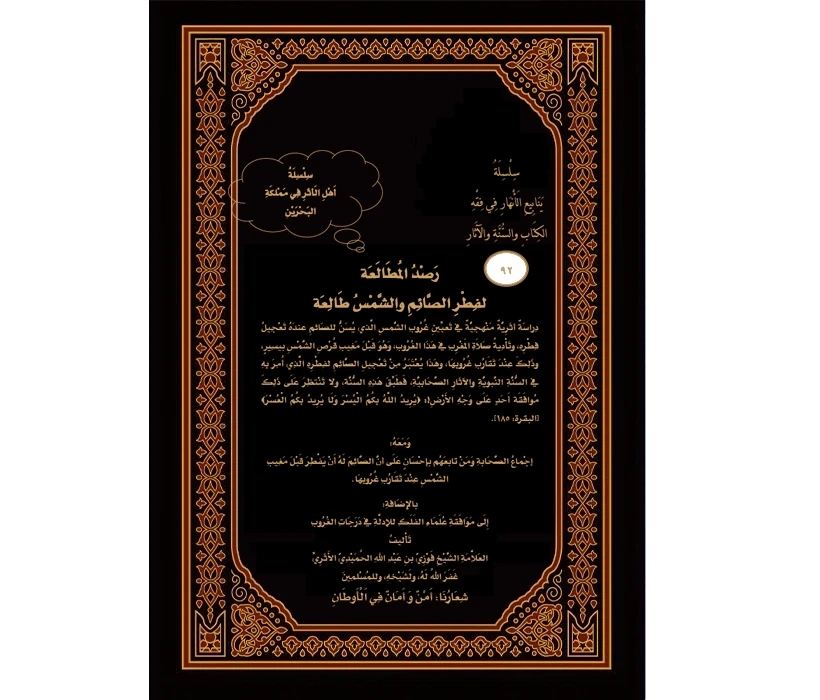 سِلْسِلَةُ
يَنَابِيعِ الأَنْهَارِ فِي فِقْهِ
الكِتَابِ والسُّنَّةِ والآثَارِ
٩٢
سِلْسِلَةُ
أَهْلِ الأَثَرِ فِي مَمْلَكَةِ
البَحْرَيْنِ
رَصْدُ المُطَالَعَة
لفِطْرِ الصَّائِمِ والشَّمْسُ طَالِعَة
دراسَةٌ أثريَّةٌ مَنْهجيَّةٌ في تَعيِين غُرُوبِ الشَّمسِ الَّذي يُسَنُّ للصَّائم عندهُ تَعْجيلُ
فِطْرِه، وتَأديةُ صَلَاةِ المَغْرِبِ في هَذَا الغُرُوب، وَهُوَ قَبْلَ مَغيب قُرْصِ الشَّمْسِ بيَسيرٍ،
وذلكَ عِنْدَ تَقَارُب غُرُوبِهَا، وهَذَا يُعْتَبَرُ مِنْ تَعجيلِ الصَّائمِ لفِطرِهِ الَّذي أُمرَ بِهِ
في السُّنَّةِ النَّبويَّةِ والآثار الصَّحَابيَّةِ، فَطبِّقْ هَذِهِ السُّنَّة، ولا تَنْتَظرْ عَلَى ذلِكَ
مُوافَقَةَ أَحَدٍ عَلَى وَجْهِ الأَرْضِ!: ﴿يُرِيدُ اللَّهُ بِكُمُ الْيُسْرَ وَلَا يُرِيدُ بِكُمُ الْعُسْرَ﴾
[البقرة: ١٨٥].
وَمَعَهُ:
إجْمَاعُ الصَّحَابةِ وَمَنْ تَابعَهُم بإحْسَانٍ عَلَى أنَّ الصَّائمَ لَهُ أنْ يَفْطِرَ قَبْلَ مَغيب
الشَّمْسِ عِنْدَ تَقَارُب غُرُوبِهَا.
بالإضَافَةِ:
إلَى مُوَافَقَةِ عُلَمَاءِ الفَلَكِ للأدلَّةِ في دَرَجَاتِ الغُرُوبِ
تَأليفُ
العَلاَّمَةِ الشَّيْخِ فَوْزِيِّ بنِ عَبْدِ اللَّهِ الحُمَيْدِيِّ الأَثَرِيِّ
غَفَرَ اللَّهُ لَهُ، ولشَيْخِهِ، وللمُسْلمينَ
شِعَارُنَا: أَمْنٌ وَأَمَانٌ فِي الْأَوْطَانِ